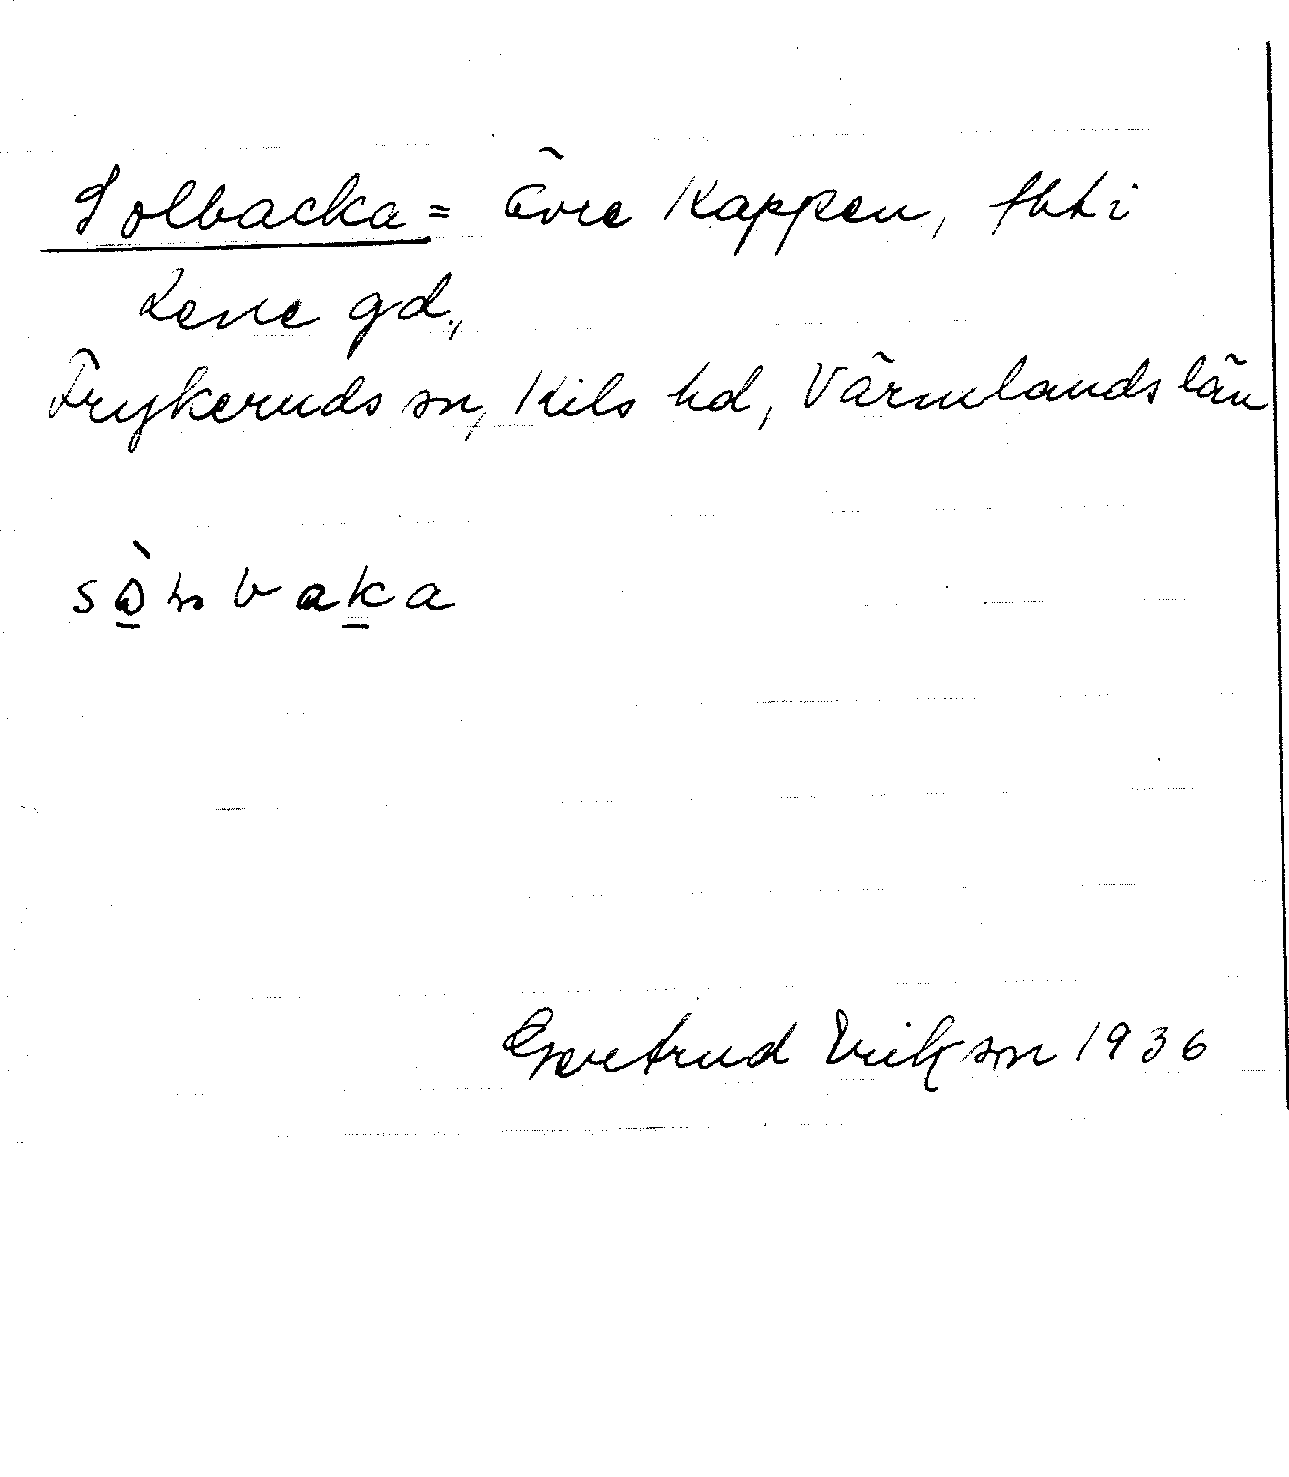 Solbacka = Övre Kappen, fbt i
Lene gd.,
Frykeruds sn, Kils hd, Värmlands län
Gertrud Erikson 1936